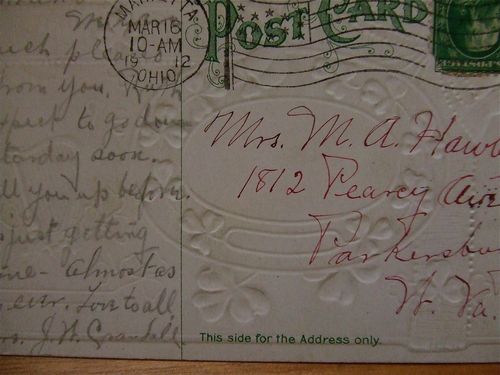 MARIETTA,
MAR 16
10-AM
19 12
OHIO
POST CARD
much pleased
from you.
expect to go down
Saturday soon
call you up before.
just getting
fine - almost as
ever. Love to all,
Mrs. J. W. Crandall
Mrs. M. A. Haw
1812 Pearcy Ave
Parkersbu
W. Va.
This side for the Address only.